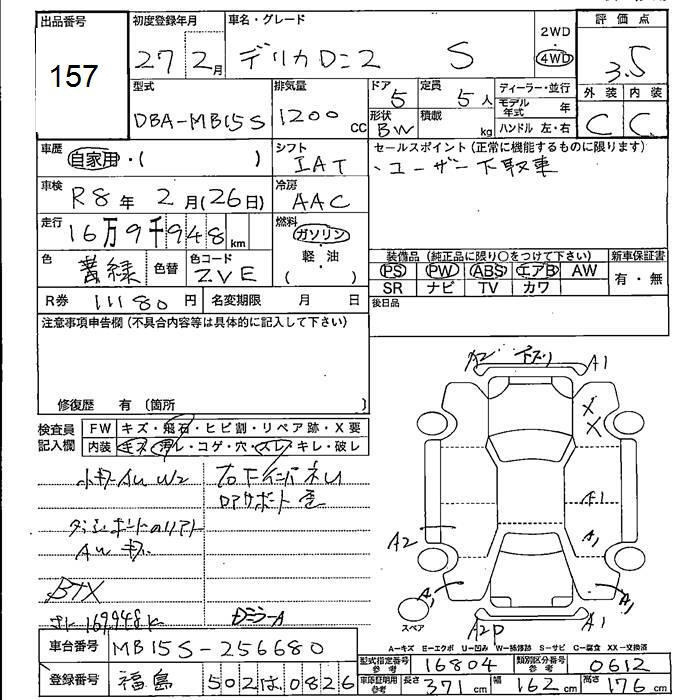 出品番号
157
初度登録年月
27年2月
車名・グレード
デリカD:2 S
2WD
・
4WD
評価点
3.5
型式
DBA-MB15S
排気量
1200cc
ドア
5
定員
5人
形状
BW
積載
kg
ディーラー・並行
モデル年式 年
ハンドル 左・右
外装 内装
C C
車歴
自家用・( )
シフト
IAT
セールスポイント(正常に機能するものに限ります)
・ユーザー下取車
車検
R8年 2月(26日)
冷房
AAC
走行
16万9千948km
燃料
ガソリン
・
軽・油
( )
色
色替
色コード
ZVE
装備品 (純正品に限り○をつけて下さい)
新車保証書
PS PW ABS エアB AW
SR ナビ TV カワ
有・無
R券 11180円
名変期限 月 日
後日品
注意事項申告欄(不具合内容等は具体的に記入して下さい)
修復歴 有 〔箇所 〕
検査員
記入欄
FW キズ・飛石・ヒビ割・リペア跡・X要
内装 キズ・汚レ・コゲ・穴・スレ・キレ・破レ
小キズAU W2
AU
BTX
169,948k
A2 下スリ A1
X
X
A1
A2
A1
A1
A1
A2P
A1
スペア
A-キズ E-エクボ U-凹み W-補修跡 S-サビ C-腐食 XX-交換済
車台番号 MB15S-256680
登録番号 福島 502は0826
型式指定番号
参考
16804
類別区分番号
参考
0612
車庫証明用
参考
長さ 371cm 幅 162cm 高さ 176cm